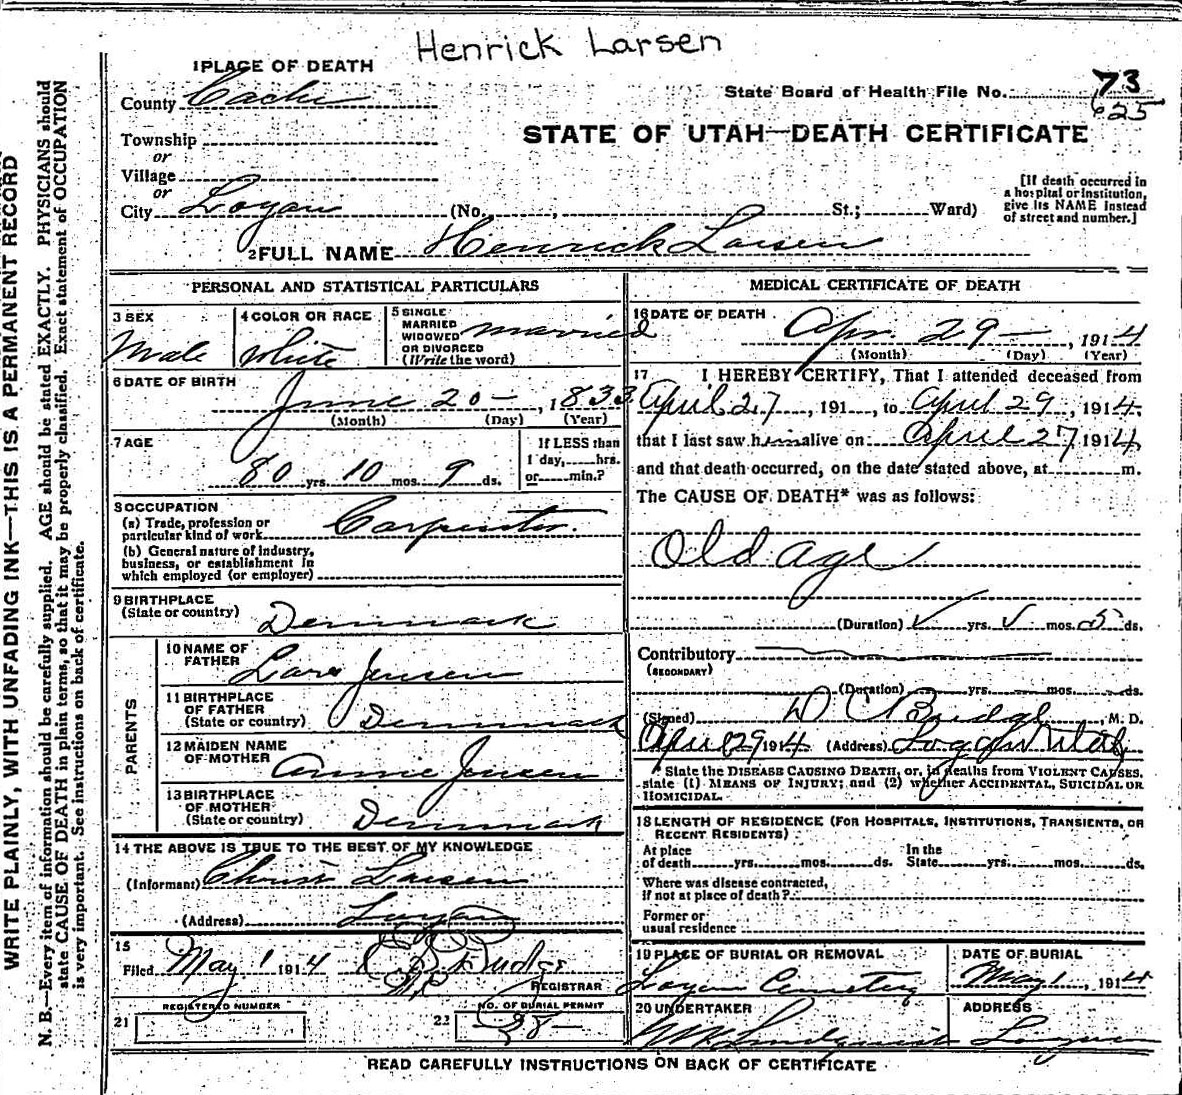 Henrick Larsen
1 PLACE OF DEATH
County Cache
State Board of Health File No. 73
625
STATE OF UTAH—DEATH CERTIFICATE
Township
or
Village
or
City Logan (No. , St.; Ward)
[If death occurred in
a hospital or institution,
give its NAME instead
of street and number.]
2 FULL NAME Henrick Larsen
PERSONAL AND STATISTICAL PARTICULARS
3 SEX
Male
4 COLOR OR RACE
White
5 SINGLE
MARRIED
WIDOWED
OR DIVORCED
(Write the word)
married
6 DATE OF BIRTH
June 20 , 1833
(Month) (Day) (Year)
7 AGE
80 yrs. 10 mos. 9 ds.
If LESS than
1 day, hrs.
or min.?
8 OCCUPATION
(a) Trade, profession or
particular kind of work Carpenter.
(b) General nature of industry,
business, or establishment in
which employed (or employer)
9 BIRTHPLACE
(State or country) Denmark
PARENTS
10 NAME OF
FATHER Lars Jensen
11 BIRTHPLACE
OF FATHER
(State or country) Denmark
12 MAIDEN NAME
OF MOTHER Annie Jensen
13 BIRTHPLACE
OF MOTHER
(State or country) Denmark
14 THE ABOVE IS TRUE TO THE BEST OF MY KNOWLEDGE
(Informant) Larsen
(Address) Logan
15
Filed May 1 1914
REGISTRAR
REGISTERED NUMBER
21
NO. OF BURIAL PERMIT
22 98
MEDICAL CERTIFICATE OF DEATH
16 DATE OF DEATH
Apr. 29 , 1914
(Month) (Day) (Year)
17 I HEREBY CERTIFY, That I attended deceased from
April 27 , 191 , to April 29 , 1914,
that I last saw him alive on April 27 1914
and that death occurred, on the date stated above, at m.
The CAUSE OF DEATH* was as follows:
Old age
(Duration) yrs. mos. 5 ds.
Contributory
(SECONDARY)
(Duration) yrs. mos. ds.
(Signed) D C Budge , M. D.
April 29 1914 (Address) Logan Utah
* State the DISEASE CAUSING DEATH, or, in deaths from VIOLENT CAUSES,
state (1) MEANS OF INJURY; and (2) whether ACCIDENTAL, SUICIDAL OR
HOMICIDAL.
18 LENGTH OF RESIDENCE (FOR HOSPITALS, INSTITUTIONS, TRANSIENTS, OR
RECENT RESIDENTS)
At place
of death yrs. mos. ds.
In the
State yrs. mos. ds.
Where was disease contracted,
if not at place of death?
Former or
usual residence
19 PLACE OF BURIAL OR REMOVAL
Logan Cemetery
DATE OF BURIAL
May 1 , 1914
20 UNDERTAKER
Lindquist
ADDRESS
Logan
READ CAREFULLY INSTRUCTIONS ON BACK OF CERTIFICATE
WRITE PLAINLY, WITH UNFADING INK—THIS IS A PERMANENT RECORD
N. B.—Every item of information should be carefully supplied. AGE should be stated EXACTLY. PHYSICIANS should
state CAUSE OF DEATH in plain terms, so that it may be properly classified. Exact statement of OCCUPATION
is very important. See instructions on back of certificate.